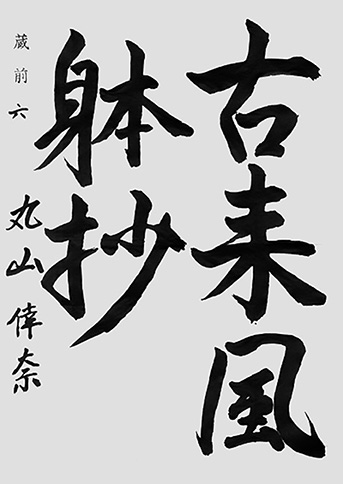 古来風
躰抄
蔵前六 丸山倖奈